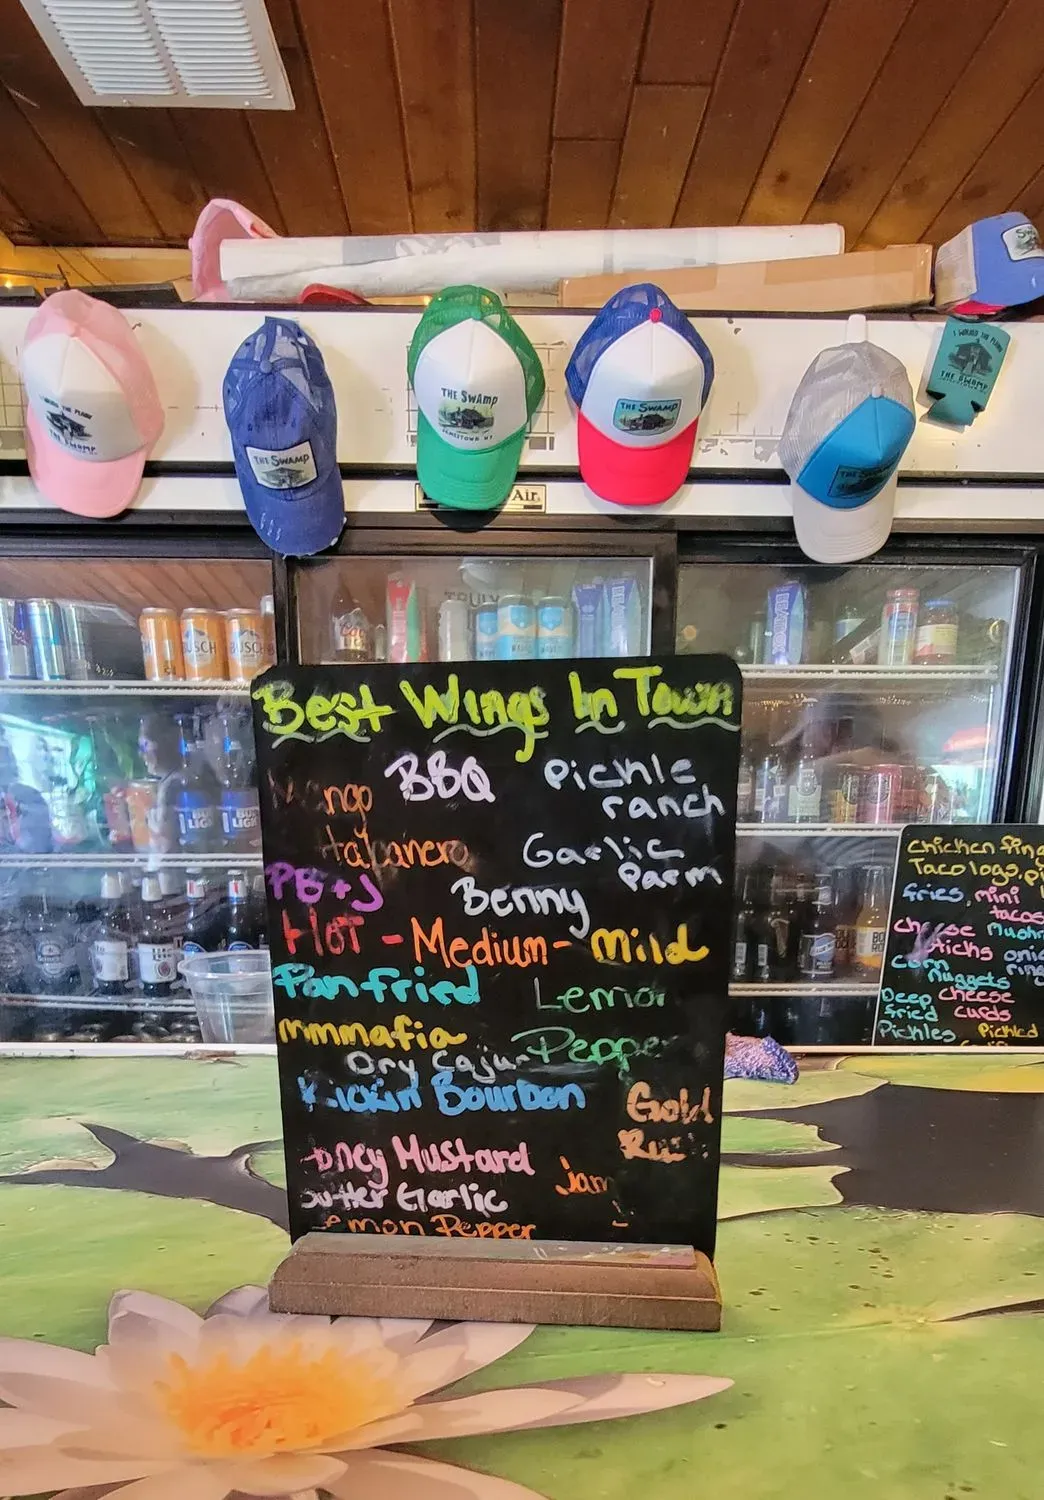 I WALKED THE PLANK
THE SWAMP
THE SWAMP
THE SWAMP
JAMESTOWN NY
THE SWAMP
THE SWAMP
I WALKED THE PLANK
THE SWAMP
Air
BUSCH
BUSCH
BUSCH
TRULY
BUD LIGHT
Best Wings In Town
Mango BBQ Pickle
ranch
Habanero Garlic
Parm
PB+J Benny
HOT - Medium - Mild
Panfried Lemon
mmmafia Pepper
Dry Cajun
Kickin Bourbon Gold
Rush
Honey Mustard Jam
Butter Garlic
Lemon Pepper
Chicken fing
Taco logs, pi
fries, mini
tacos
cheese mushr
sticks oni
corn ring
nuggets
Deep cheese
fried curds
Pickles Pickled